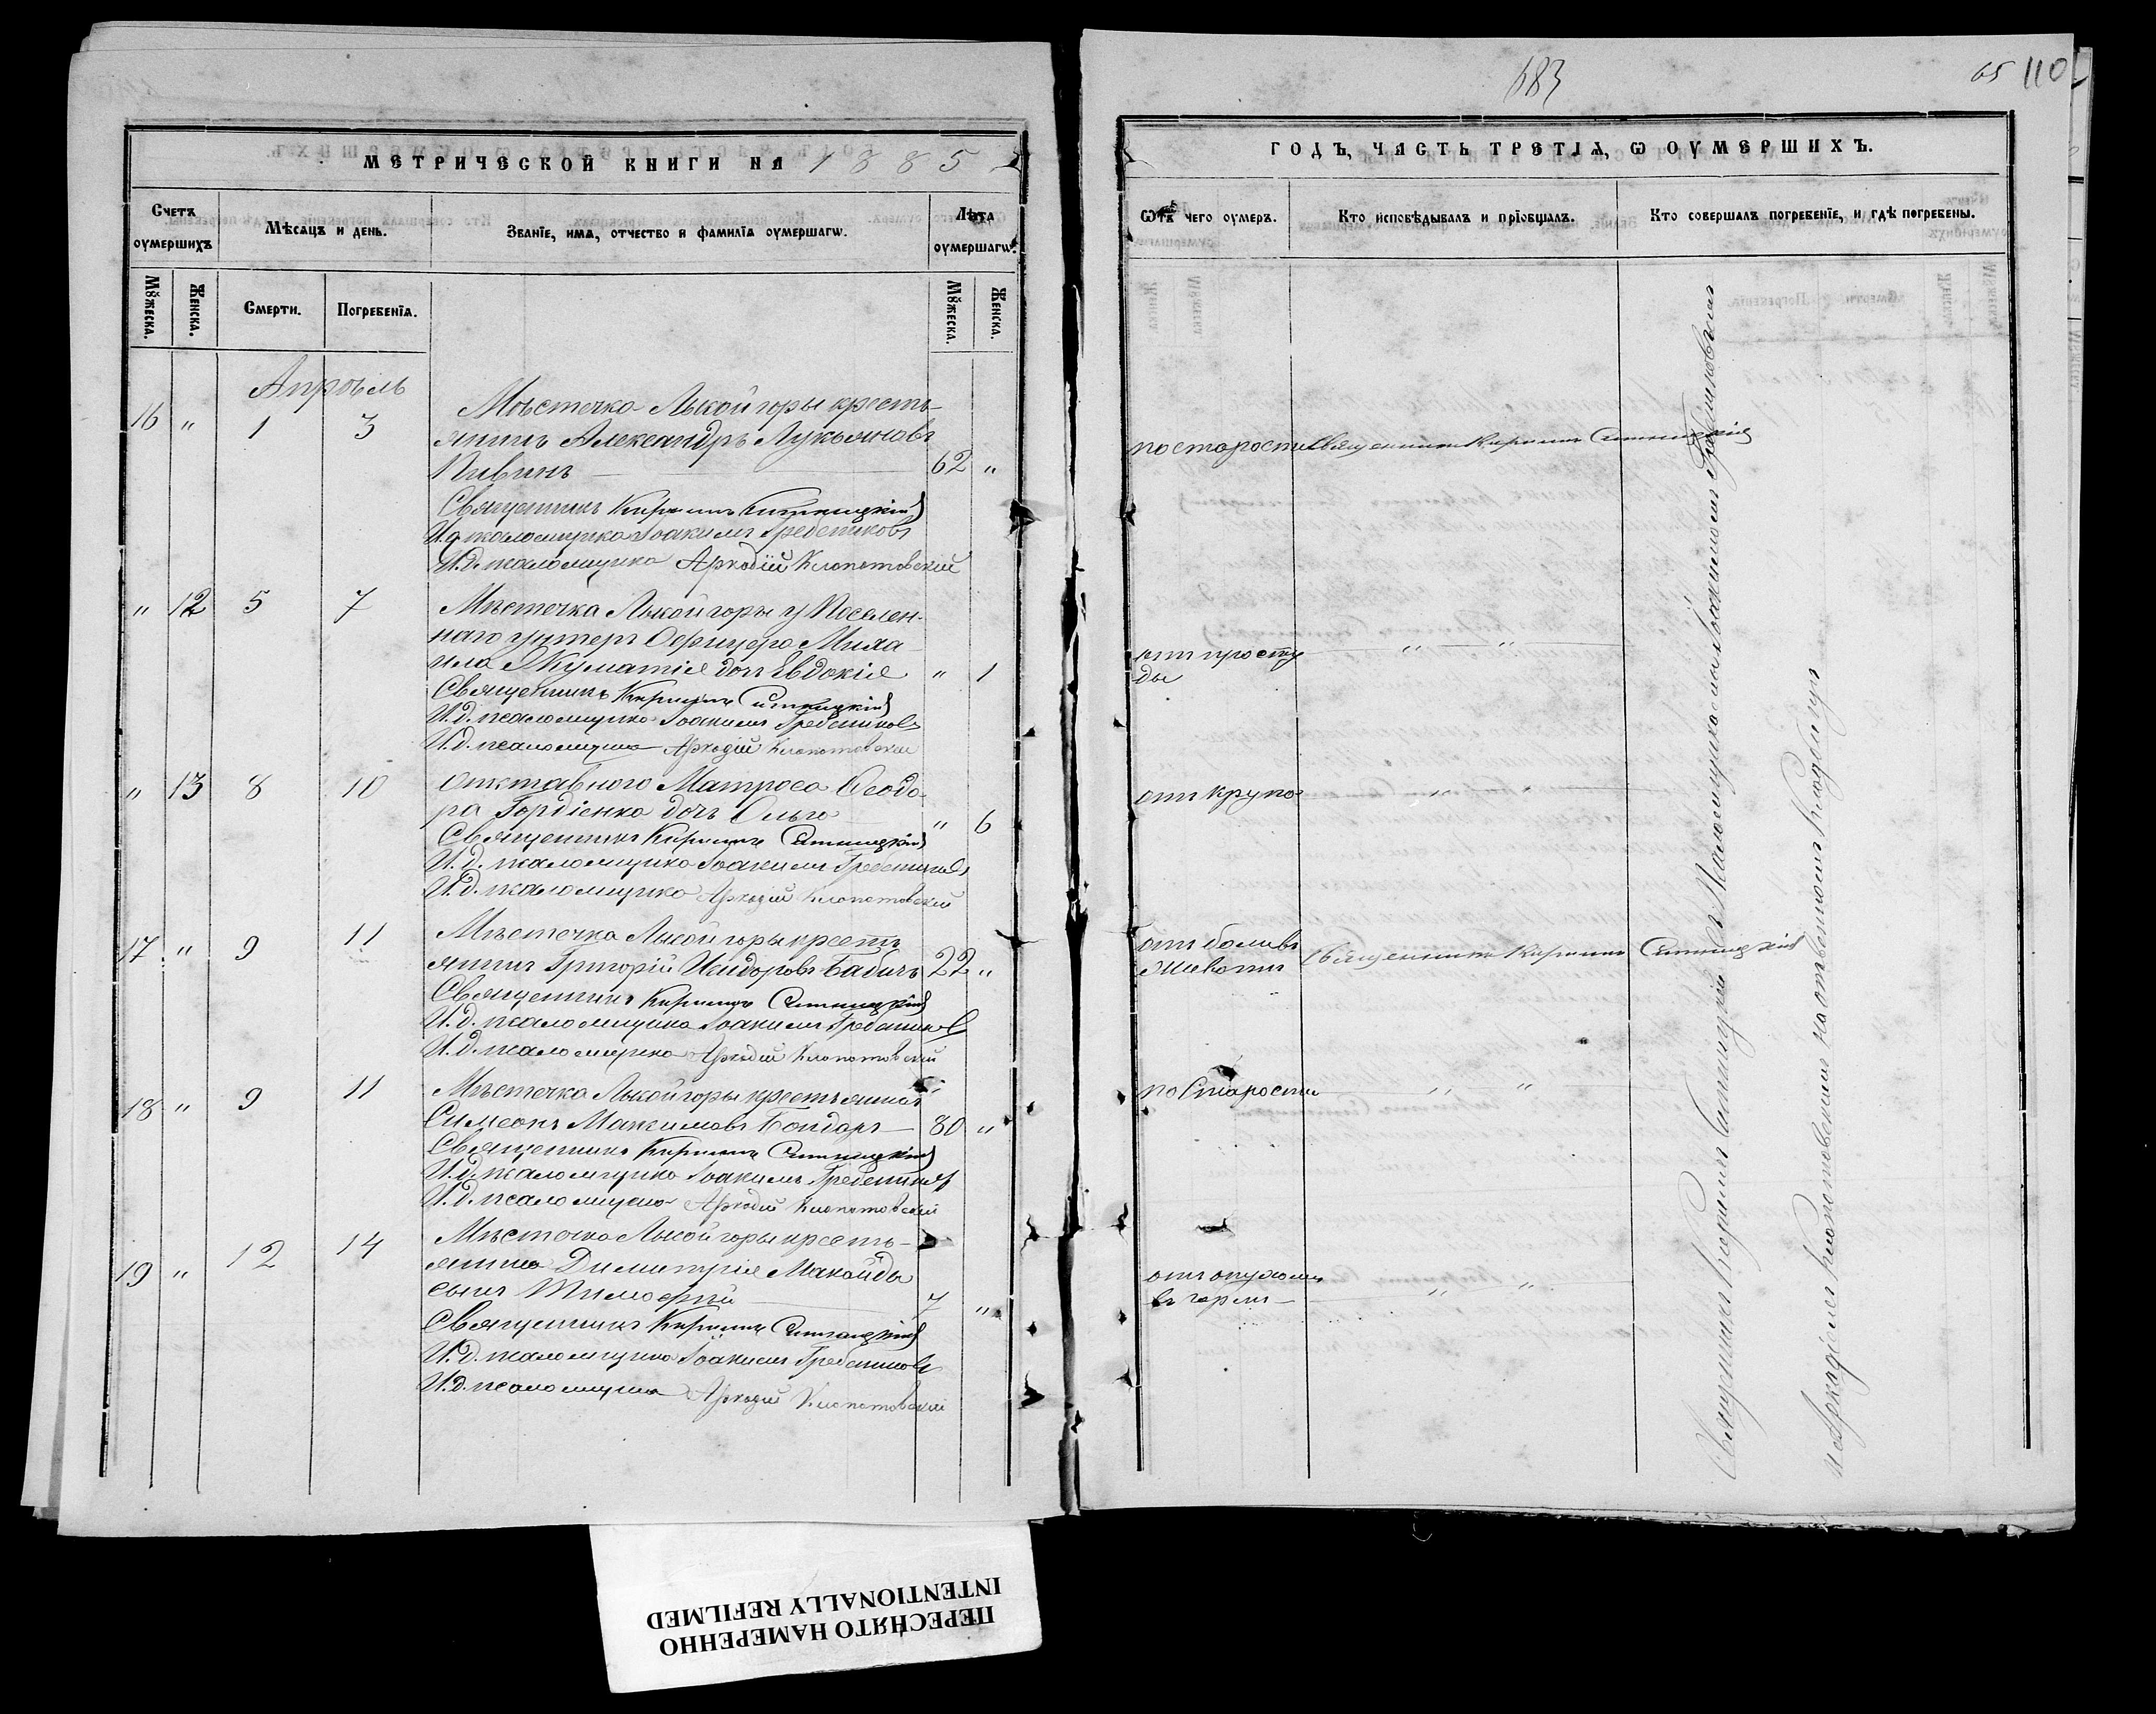 МЕТРИЧЕСКОЙ КНИГИ НА 1885
Счетъ оумершихъ
Мѣсяцъ и день.
Званїе, имя, отчество и фамилїя оумершагѡ.
Лѣта оумершагѡ.
Мꙋжеска.
Женска.
Смерти.
Погребенїя.
Мꙋжеска.
Женска.
Апрѣль
16 " 1 3
Мѣстечка Лысой горы кресть-
янинъ Александръ Лукьяновъ
Пивинъ 62 "
Священникъ Кириллъ Ситницкій
И.д. псаломщика Іоакимъ Гребенниковъ
И.д. псаломщика Аркадій Клопотовскій
" 12 5 7
Мѣстечка Лысой горы у Поселен-
наго унтеръ Офицера Миха-
ила дочь Евдокія " 1
Священникъ Кириллъ Ситницкій
И.д. псаломщика Іоакимъ Гребенниковъ
И.д. псаломщика Аркадій Клопотовскій
" 13 8 10
Отставного Матроса Ѳеодо-
ра Гордіенка дочь Ольга " 6
Священникъ Кириллъ Ситницкій
И.д. псаломщика Іоакимъ Гребенниковъ
И.д. псаломщика Аркадій Клопотовскій
17 " 9 11
Мѣстечка Лысой горы кресть
янинъ Григорій Исидоровъ Бабичъ 22 "
Священникъ Кириллъ Ситницкій
И.д. псаломщика Іоакимъ Гребенниковъ
И.д. псаломщика Аркадій Клопотовскій
18 " 9 11
Мѣстечка Лысой горы крестьянинъ
Симеонъ Максимовъ Бондарь 80 "
Священникъ Кириллъ Ситницкій
И.д. псаломщика Іоакимъ Гребенниковъ
И.д. псаломщика Аркадій Клопотовскій
19 " 12 14
Мѣстечка Лысой горы кресть-
янина Димитрія Макойды
сынъ Тимофей 7 "
Священникъ Кириллъ Ситницкій
И.д. псаломщика Іоакимъ Гребенниковъ
И.д. псаломщика Аркадій Клопотовскій
683
65 110
ГОДЪ, ЧАСТЬ ТРЕТІЯ, Ѡ ОУМЕРШИХЪ.
Ѿ чего оумеръ.
Кто исповѣдывалъ и прїобщалъ.
Кто совершалъ погребенїе, и гдѣ погребены.
по старости Священникъ Кириллъ Ситницкій
отъ просту " "
ды
отъ крупа " "
отъ боливъ
живота Священникъ Кириллъ Ситницкій
по Старости " "
отъ опухоли
въ горлѣ " "
Священникъ Кириллъ Ситницкій съ Псаломщиками Іоакимомъ Гребенниковымъ
и Аркадіемъ Клопотовскимъ на отведенномъ кладбищѣ
ПЕРЕСНЯТО НАМЕРЕННО
INTENTIONALLY REFILMED